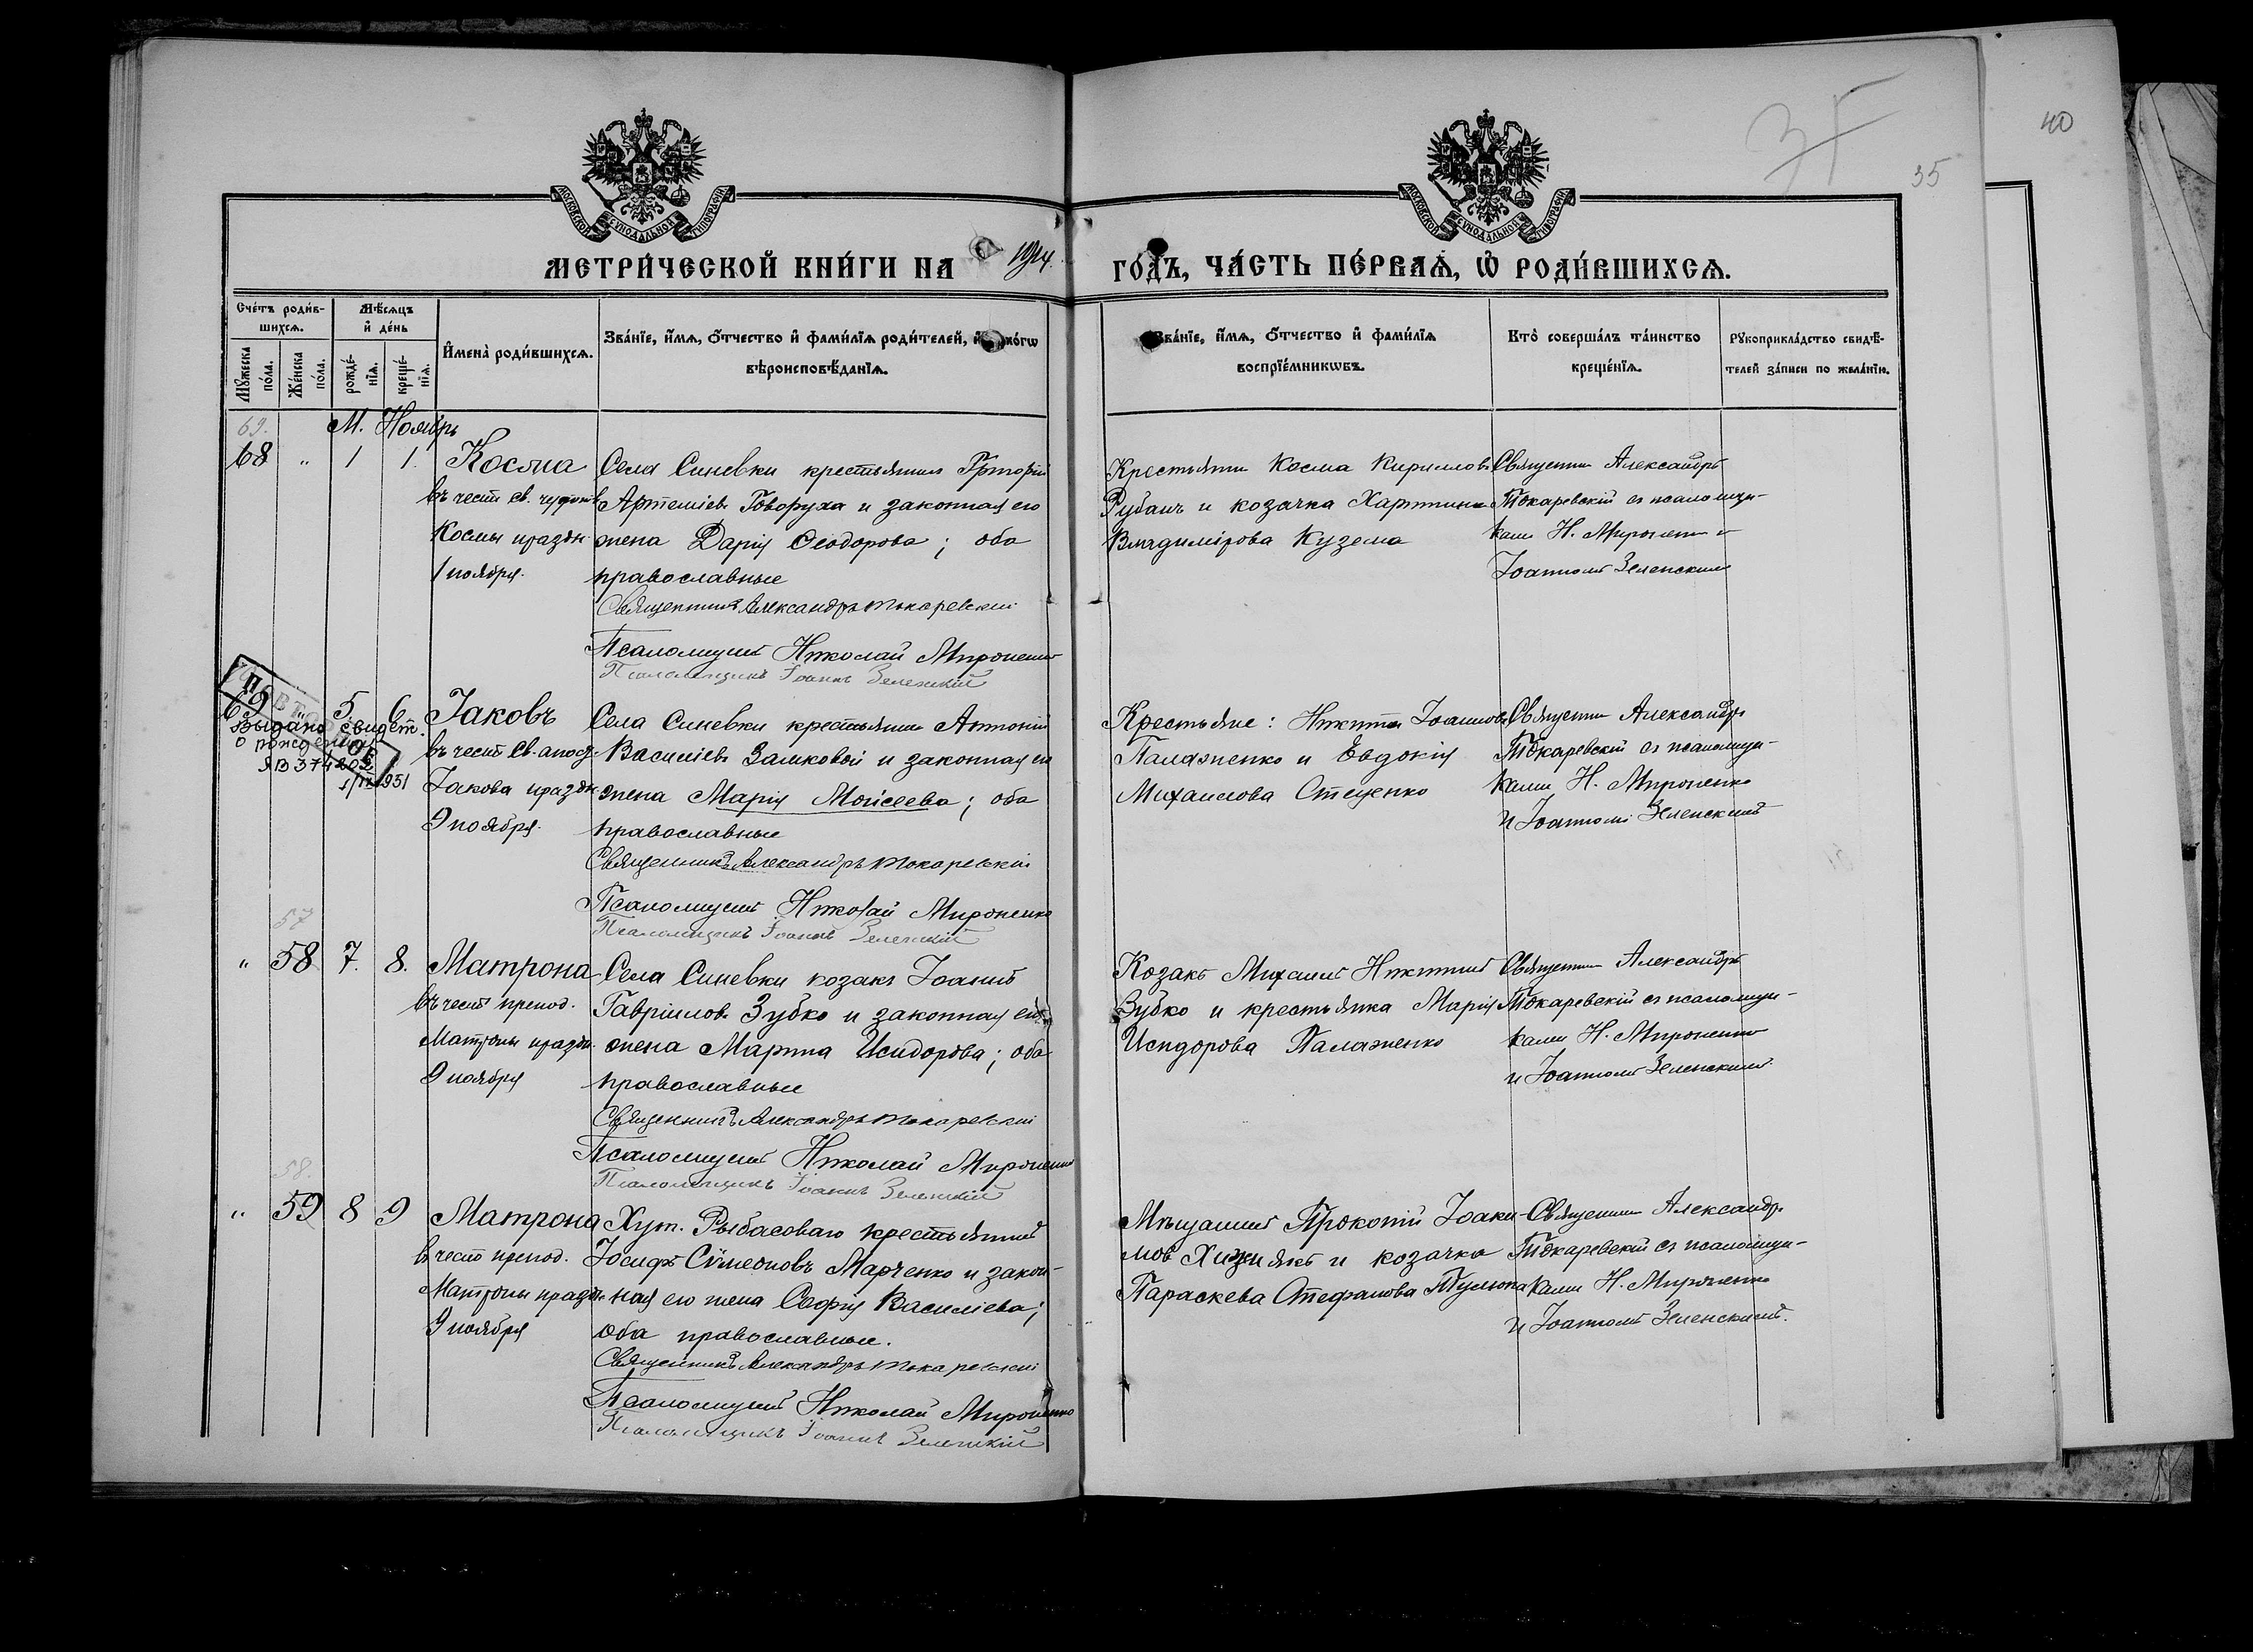 35
35
40
МОСКОВСКОЙ СѴНОДАЛЬНОЙ ТИПОГРАФИ
МОСКОВСКОЙ СѴНОДАЛЬНОЙ ТИПОГРАФИ
МЕТРИ́ЧЕСКОЙ КНИ́ГИ НА 1914.
ГО́ДЪ, ЧА́СТЬ ПЕ́РВАѦ, Ѡ҆ РОДИ́ВШИХСѦ.
Сче́тъ роди́в-
шихсѧ.
Мѣ́сѧцъ
и҆ де́нь
Мꙋжеска
по́ла.
Же́нска
по́ла.
рожде́-
нїѧ.
креще́-
нїѧ.
И҆мена̀ роди́вшихсѧ.
Зва́нїе, и҆́мѧ, ѻ҆́тчество и҆ фами́лїѧ роди́телей, и҆ ко́гѡ
вѣроисповѣ́данїѧ.
Зва́нїе, и҆́мѧ, ѻ҆́тчество и҆ фами́лїѧ
воспрїе́мникѡвъ.
Кто̀ соверша́лъ та́инство
креще́нїѧ.
Рꙋкоприкла́дство свидѣ́-
телей за́писи по жела́нїю.
69.
М. Ноябрь
68 " 1 1. Косма
въ честь св.
Космы праздн.
1 ноября.
Села Синевки крестьянин Григорій
Артеміевъ Говоруха и законная его
жена Дарія Ѳеодорова; оба
православные
Священникъ Александръ Токаревскій
Псаломщикъ Николай Мироненко
Псаломщикъ Іоаннъ Зеленскій
Крестьянин Косма Кириллов
Рубанъ и козачка Харитина
Владимірова Кузема
Священник Александръ
Токаревскій съ псаломщи-
ками Н. Мироненко и
Іоанномъ Зеленским
69 " 5 6 Іаковъ
Выдано свидет.
о рождении
ЯВ
1951
въ честь Св. апост.
Іакова праздн.
9 ноября.
Села Синевки крестьянин Антоній
Василіевъ Замковой и законная его
жена Марія Моисеева; оба
православные
Священникъ Александръ Токаревскій
Псаломщикъ Николай Мироненко
Псаломщикъ Іоаннъ Зеленскій
Крестьяне: Никита Іоаннов
Палаженко и Евдокія
Михаилова Стеценко
Священник Александръ
Токаревскій съ псаломщи-
ками Н. Мироненко
и Іоанномъ Зеленскимъ
57
" 58 7. 8. Матрона
въ честь препод.
Матроны праздн.
9 ноября
Села Синевки козакъ Іоаннъ
Гавріиловъ Зубко и законная его
жена Марина Исидорова; оба
православные
Священникъ Александръ Токаревскій
Псаломщикъ Николай Мироненко
Псаломщикъ Іоаннъ Зеленскій
Козакъ Михаилъ Никитинъ
Зубко и крестьянка Марія
Исидорова Палаженко
Священник Александръ
Токаревскій съ псаломщи-
ками Н. Мироненко
и Іоанномъ Зеленскимъ.
58.
" 59 8 9 Матрона
въ честь препод.
Матроны праздн.
9 ноября
Хут. Рыбасоваго крестьянинъ
Іосифъ Сѵмеоновъ Марченко и закон-
ная его жена Софія Василіева;
оба православные.
Священникъ Александръ Токаревскій
Псаломщикъ Николай Мироненко
Псаломщикъ Іоаннъ Зеленскій
Мѣщанинъ Прокопій Іоаки-
мов Хижнякъ и козачка
Параскева Стефанова Тулюпа
Священник Александръ
Токаревскій съ псаломщи-
ками Н. Мироненко
и Іоанномъ Зеленскимъ.